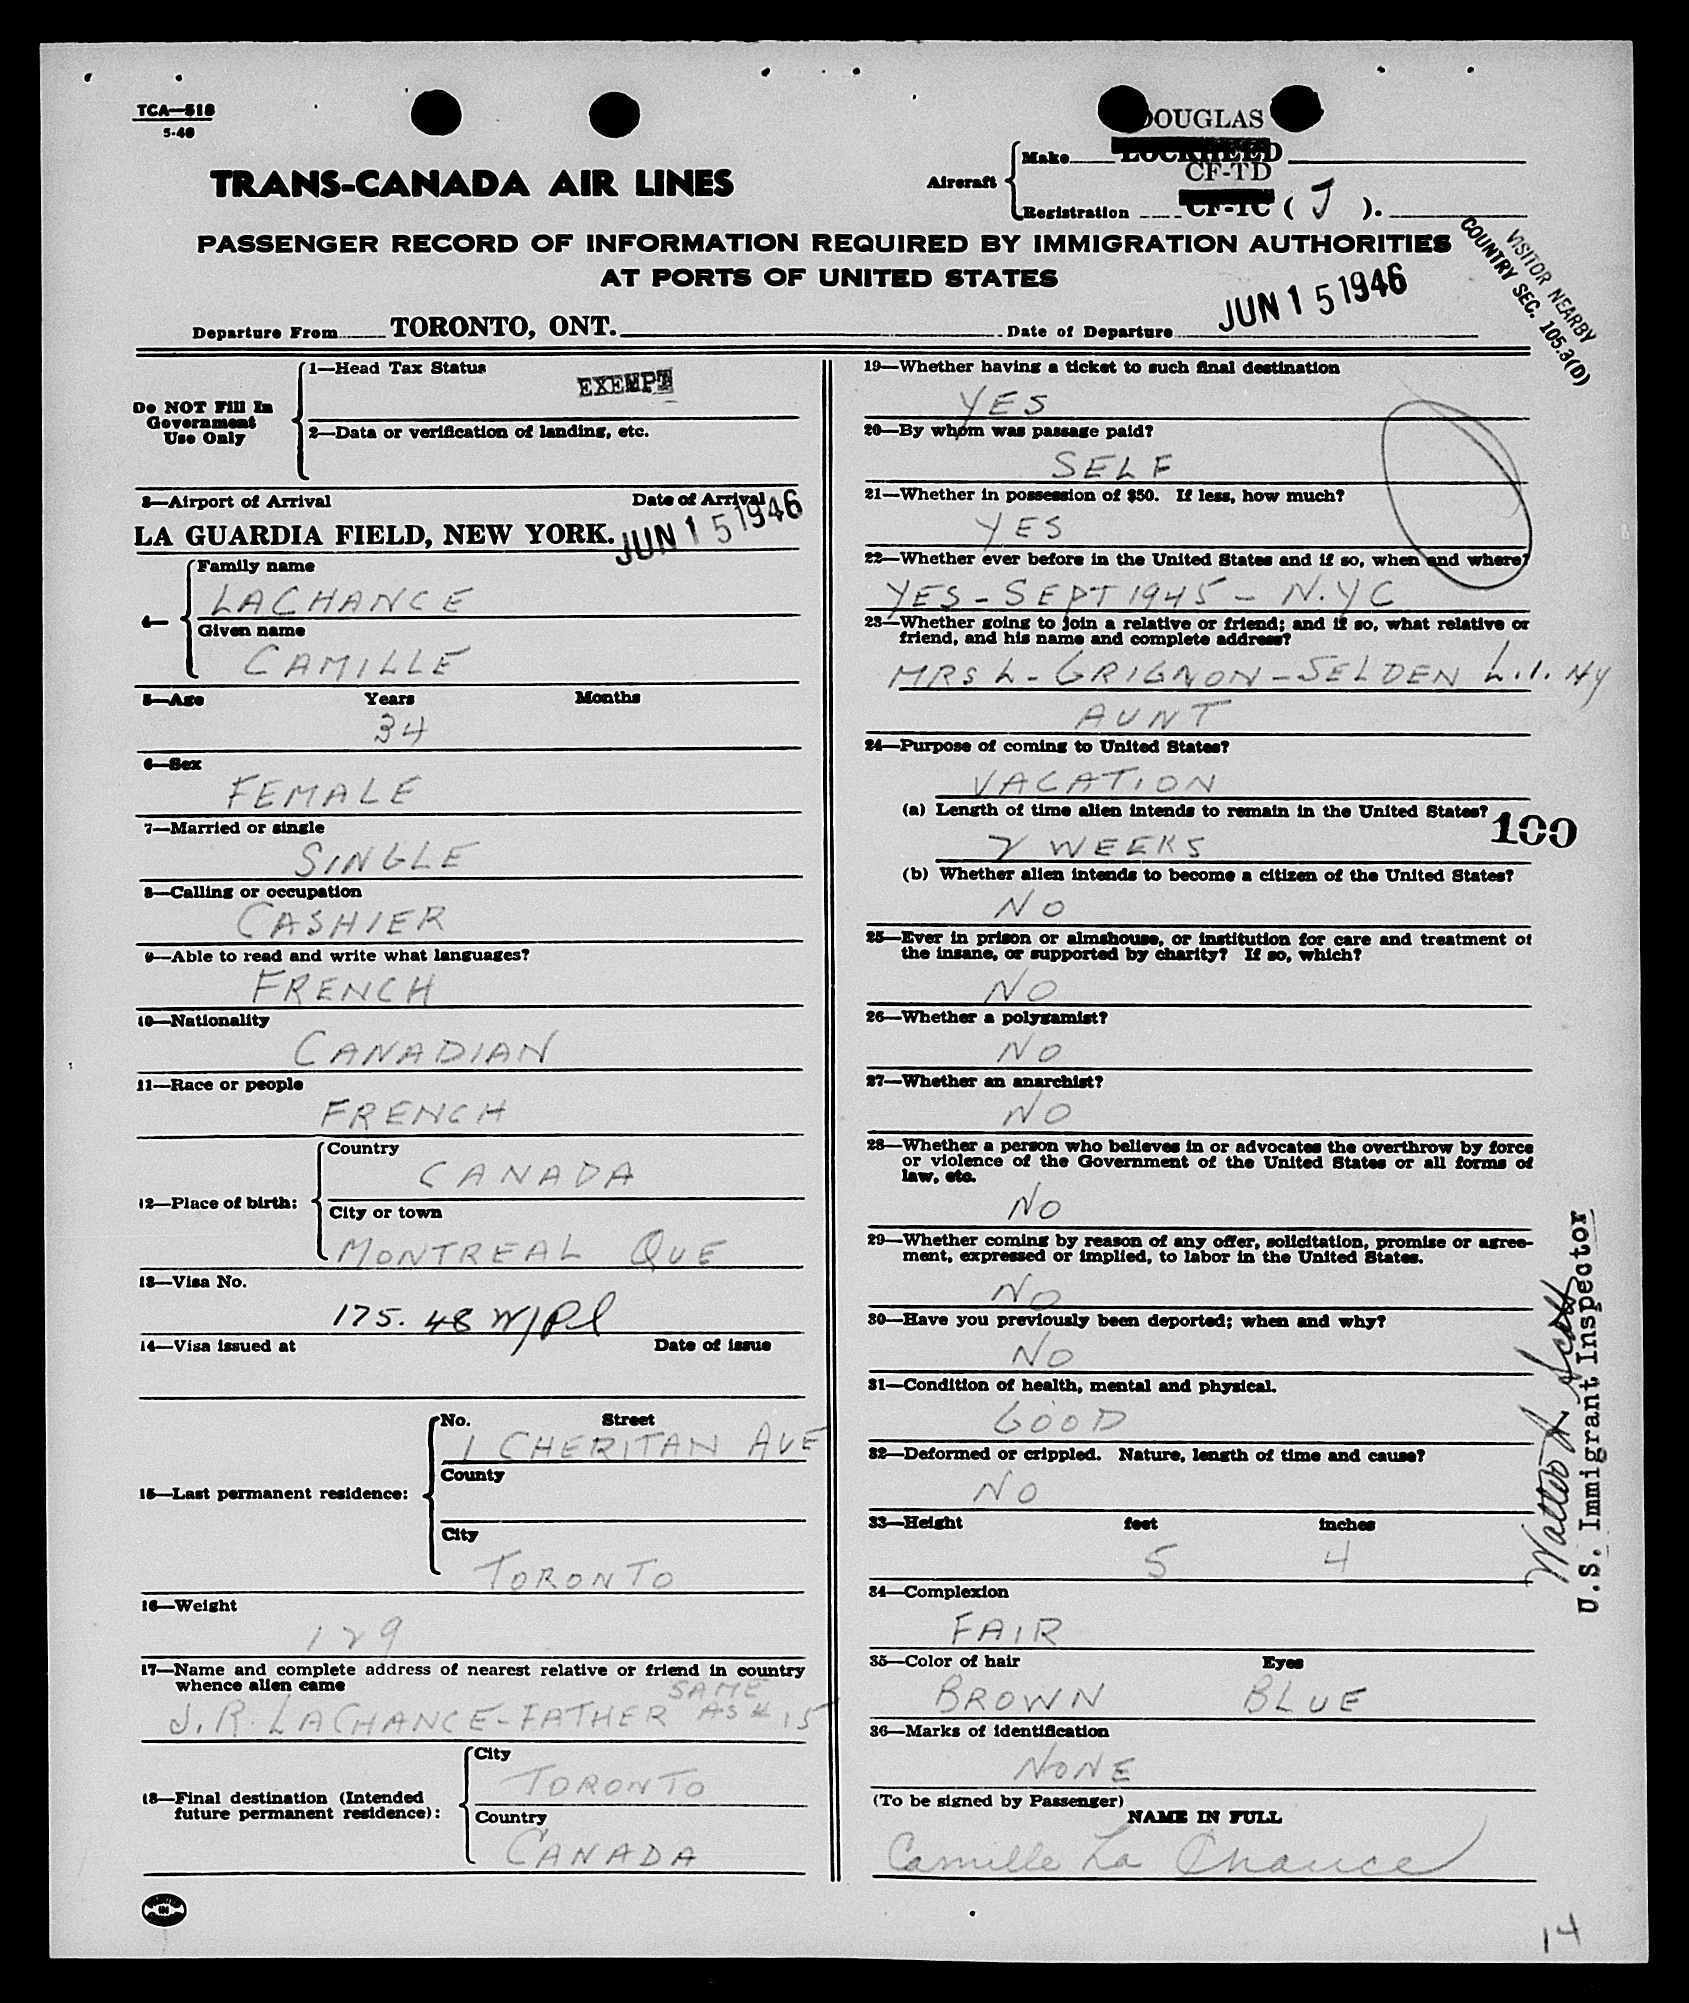 TCA—518
5-46
DOUGLAS
Aircraft
Make LOCKHEED
CF-TD
Registration CF-TC ( J ).
TRANS-CANADA AIR LINES
PASSENGER RECORD OF INFORMATION REQUIRED BY IMMIGRATION AUTHORITIES
AT PORTS OF UNITED STATES
VISITOR NEARBY
COUNTRY SEC. 105.3(D)
Departure From TORONTO, ONT. Date of Departure JUN 15 1946
Do NOT Fill In
Government
Use Only
1—Head Tax Status
EXEMPT
2—Data or verification of landing, etc.
3—Airport of Arrival Date of Arrival
LA GUARDIA FIELD, NEW YORK. JUN 15 1946
4—
Family name
LACHANCE
Given name
CAMILLE
5—Age Years Months
34
6—Sex
FEMALE
7—Married or single
SINGLE
8—Calling or occupation
CASHIER
9—Able to read and write what languages?
FRENCH
10—Nationality
CANADIAN
11—Race or people
FRENCH
12—Place of birth:
Country
CANADA
City or town
MONTREAL QUE
13—Visa No.
175. 48
14—Visa issued at Date of issue
15—Last permanent residence:
No. Street
1 CHERITAN AVE
County
City
TORONTO
16—Weight
129
17—Name and complete address of nearest relative or friend in country
whence alien came
J. R. LACHANCE-FATHER SAME AS # 15
18—Final destination (Intended
future permanent residence):
City
TORONTO
Country
CANADA
19—Whether having a ticket to such final destination
YES
20—By whom was passage paid?
SELF
21—Whether in possession of $50. If less, how much?
YES
22—Whether ever before in the United States and if so, when and where?
YES - SEPT 1945 - N.Y C
23—Whether going to join a relative or friend; and if so, what relative or
friend, and his name and complete address?
MRS L - GRIGNON - SELDEN L.I. NY
AUNT
24—Purpose of coming to United States?
VACATION
(a) Length of time alien intends to remain in the United States?
2 WEEKS
100
(b) Whether alien intends to become a citizen of the United States?
NO
25—Ever in prison or almshouse, or institution for care and treatment of
the insane, or supported by charity? If so, which?
NO
26—Whether a polygamist?
NO
27—Whether an anarchist?
NO
28—Whether a person who believes in or advocates the overthrow by force
or violence of the Government of the United States or all forms of
law, etc.
NO
29—Whether coming by reason of any offer, solicitation, promise or agree-
ment, expressed or implied, to labor in the United States.
NO
30—Have you previously been deported; when and why?
NO
31—Condition of health, mental and physical.
GOOD
32—Deformed or crippled. Nature, length of time and cause?
NO
33—Height feet inches
5 4
34—Complexion
FAIR
35—Color of hair Eyes
BROWN BLUE
36—Marks of identification
NONE
(To be signed by Passenger)
NAME IN FULL
Camille La Chance
Walter A. Scott
U.S. Immigrant Inspector
14